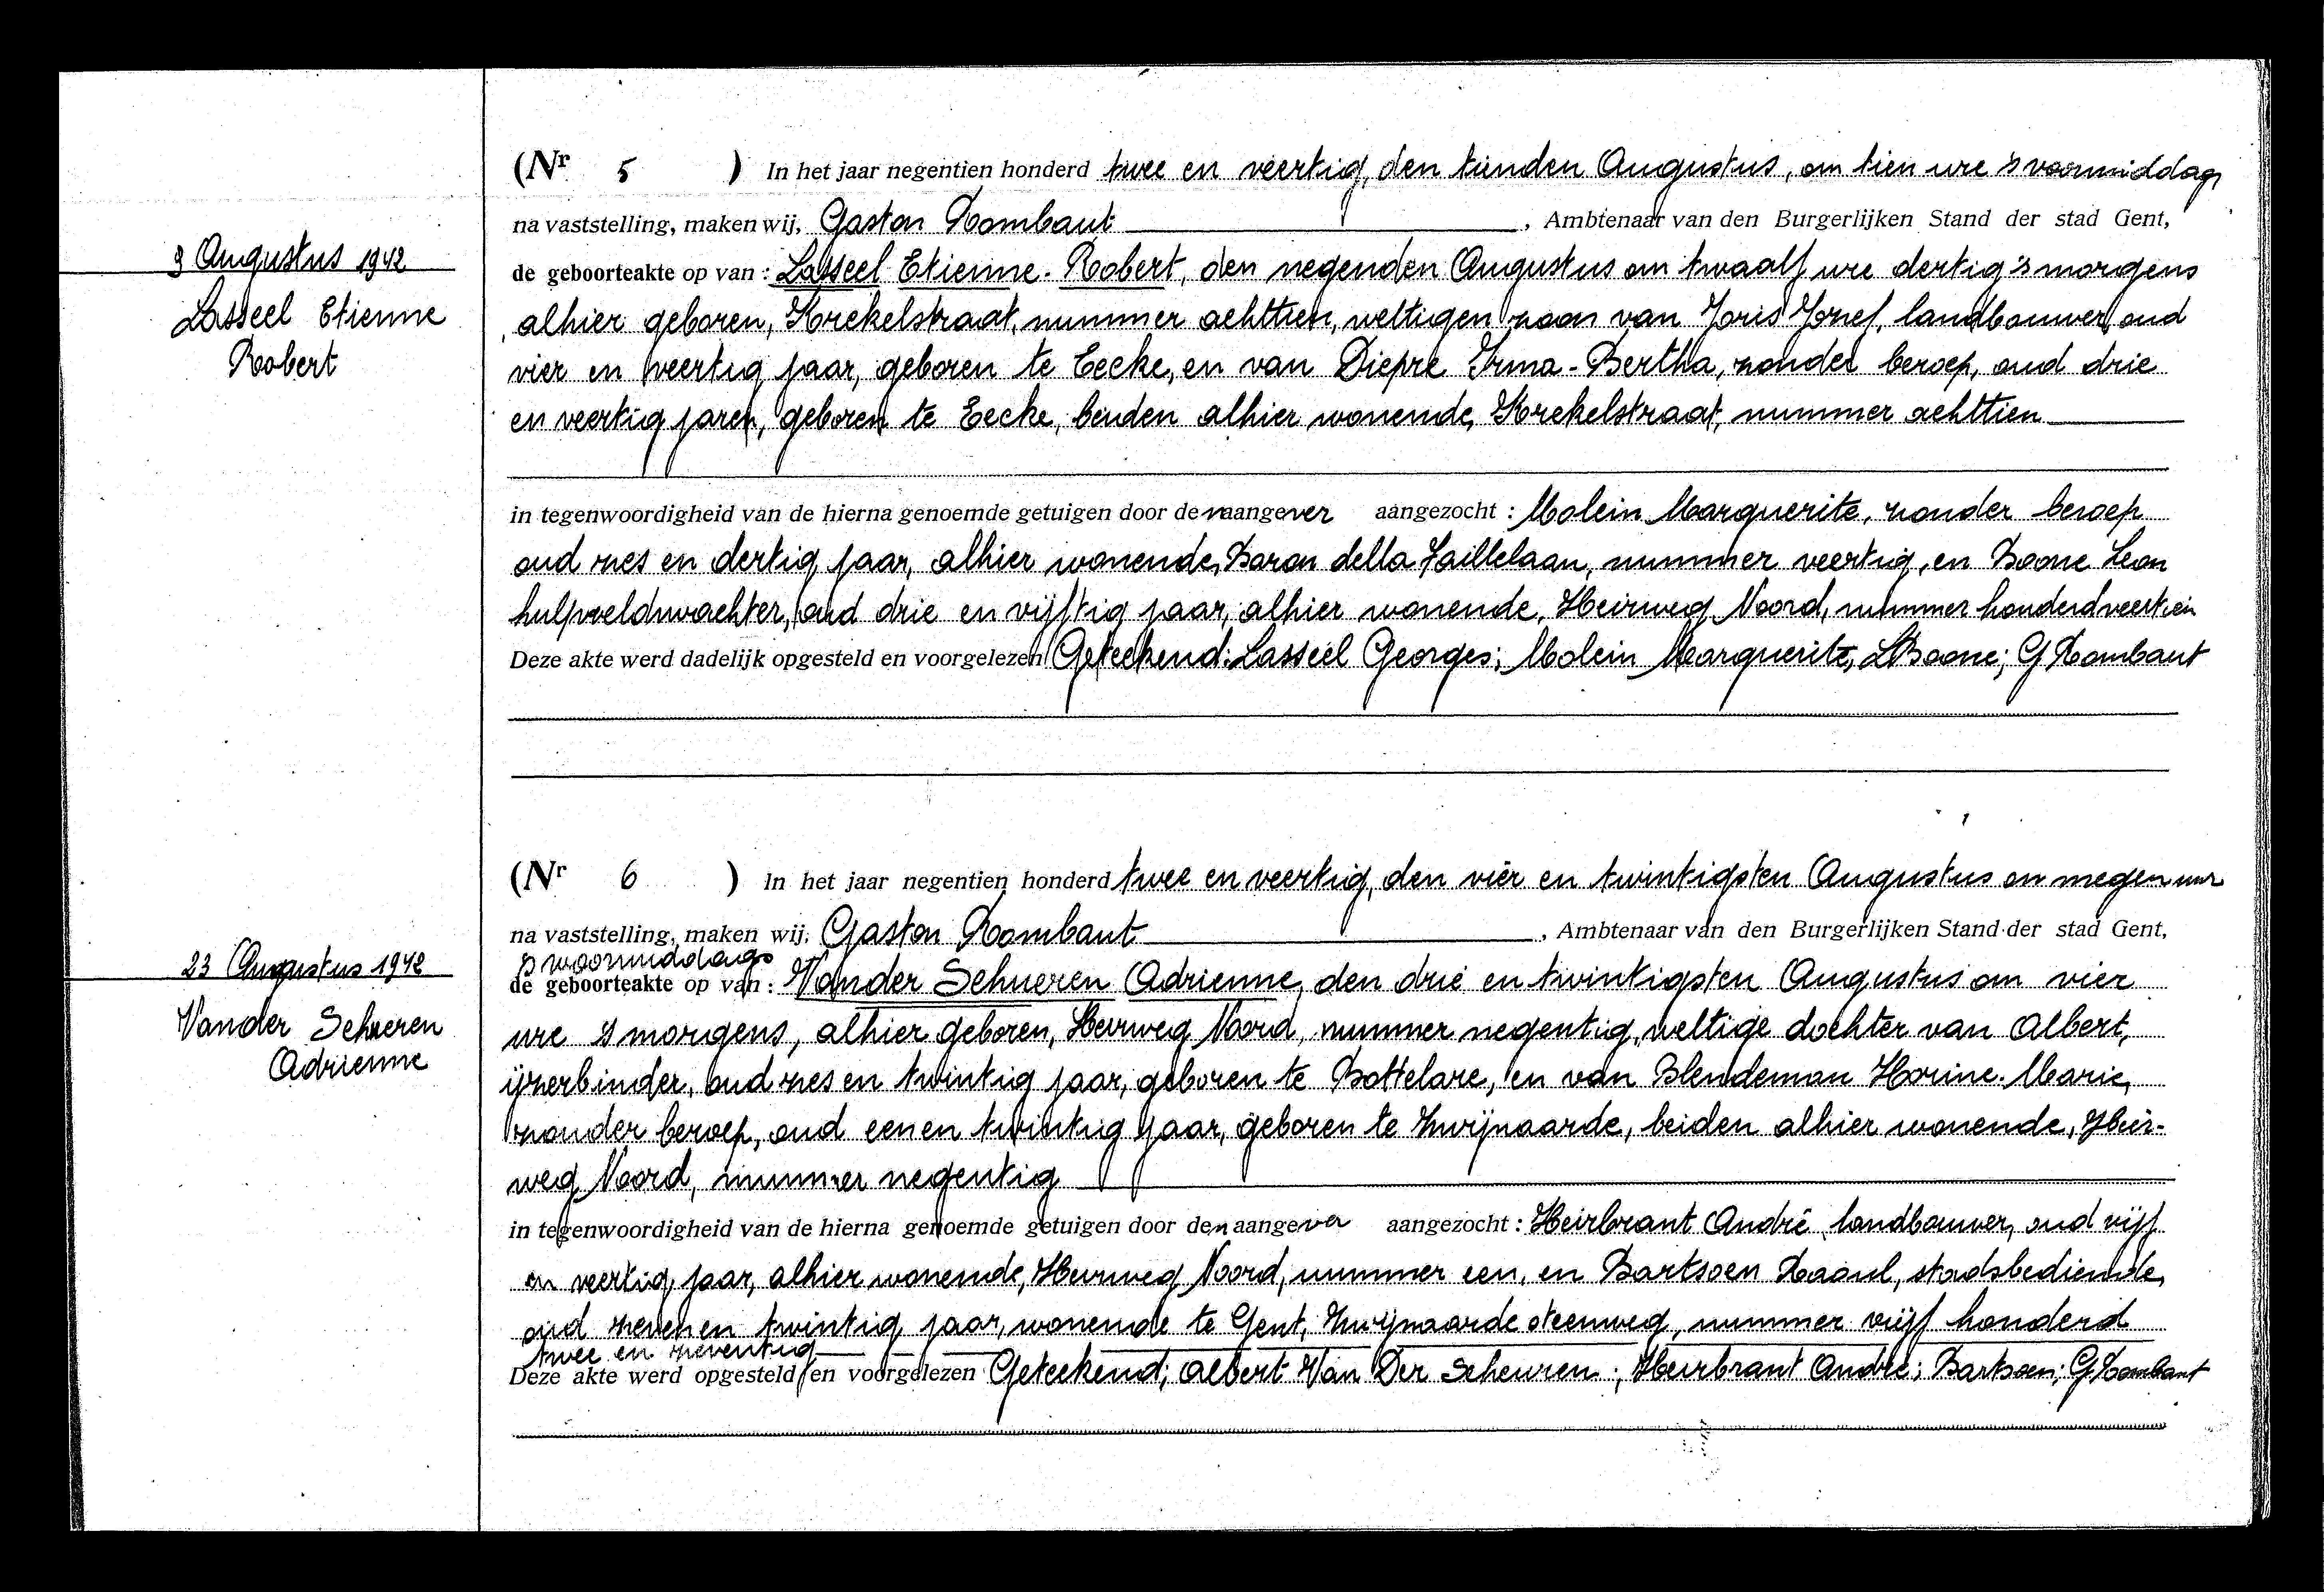 9 Augustus 1942
Lasseel Etienne
Robert
(Nr 5 ) In het jaar negentien honderd twee en veertig, den tienden Augustus, om tien ure 's voormiddag
na vaststelling, maken wij, Gaston Rombaut , Ambtenaar van den Burgerlijken Stand der stad Gent,
de geboorteakte op van : Lasseel Etienne-Robert, den negenden Augustus om twaalf ure dertig 's morgens
alhier geboren, Krekelstraat, nummer achttien, wettigen zoon van Joris Jozef, landbouwer, oud
vier en veertig jaar, geboren te Eecke, en van Diepre Irma-Bertha, zonder beroep, oud drie
en veertig jaren, geboren te Eecke, beiden alhier wonende, Krekelstraat, nummer achttien
in tegenwoordigheid van de hierna genoemde getuigen door den aangever aangezocht : Molein Marguerite, zonder beroep
oud zes en dertig jaar, alhier wonende, Baron della Faillelaan, nummer veertig, en Boone Leon
hulpveldwachter, oud drie en vijftig jaar, alhier wonende, Heirweg Noord, nummer honderd veertien
Deze akte werd dadelijk opgesteld en voorgelezen Geteekend: Lasseel Georges; Molein Marguerite, L Boone; G Rombaut
23 Augustus 1942
Vander Schueren
Adrienne
(Nr 6 ) In het jaar negentien honderd twee en veertig, den vier en twintigsten Augustus om negen uur
na vaststelling, maken wij, Gaston Rombaut , Ambtenaar van den Burgerlijken Stand der stad Gent,
's voormiddags
de geboorteakte op van : Vander Schueren Adrienne, den drie en twintigsten Augustus om vier
ure 's morgens, alhier geboren, Heirweg Noord, nummer negentig, wettige dochter van Albert,
ijzerbinder, oud zes en twintig jaar, geboren te Bottelare, en van Blendeman Horine-Marie,
zonder beroep, oud een en twintig jaar, geboren te Zwijnaarde, beiden alhier wonende, Heir-
weg Noord, nummer negentig
in tegenwoordigheid van de hierna genoemde getuigen door den aangever aangezocht : Heirbrant André, landbouwer, oud vijf
en veertig jaar, alhier wonende, Heirweg Noord, nummer een, en Bartsoen Raoul, stadsbediende,
oud zeven en twintig jaar, wonende te Gent, Zwijnaarde steenweg, nummer vijf honderd
twee en zeventig
Deze akte werd opgesteld en voorgelezen Geteekend; Albert Van Der Scheuren; Heirbrant André; Bartsoen; G Rombaut